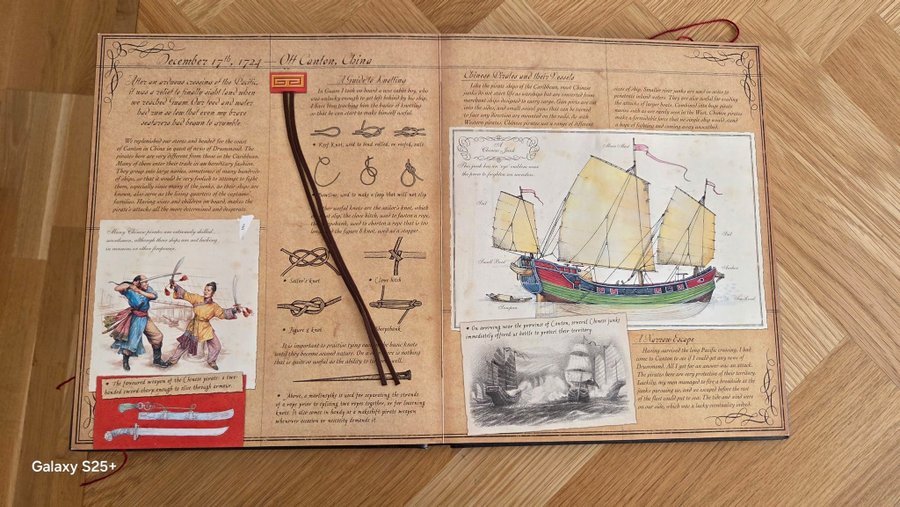 December 17th, 1724 — Off Canton, China
After an arduous crossing of the Pacific,
it was a relief to finally sight land when
we reached Guam. Our food and water
had run so low that even my brave
seafarers had begun to
We replenished our stores and headed for the coast
of Canton in China in quest of news of Drummond. The
pirates here are very different from those in the Caribbean.
Many of them enter their trade in an hereditary fashion.
They group into large navies, sometimes of many hundreds
of ships, so that it would be very foolish to attempt to fight
them, especially since many of the junks, as their ships are
known, also serve as the living quarters of the captains'
families. Having wives and children on board, makes the
pirate's attacks all the more determined and desperate.
Many Chinese pirates are extremely skilled
swordsmen, although their ships are not lacking
in cannons or other firepower.
• The favoured weapon of the Chinese pirate: a two-
handed sword sharp enough to slice through armour.
A Guide to Knotting
In Guam I took on board a new cabin boy, who
was unlucky enough to get left behind by his ship.
I have been teaching him the basics of knotting
so that he can start to make himself useful.
• Reef knot, used to bind rolled, or reefed, sails
used to make a loop that will not slip
useful knots are the sailor's knot, which
slip, the clove hitch, used to fasten a rope,
sheepshank, used to shorten a rope that is too
the figure 8 knot, used as a stopper.
• Sailor's knot
• Clove hitch
• Figure 8 knot
sheepshank
It is important to practise tying each of the basic knots
until they become second nature. On a there is nothing
that is quite so useful as the ability to tie well.
• Above, a marlinspike is used for separating the strands
of a rope prior to splicing two ropes together, or for loosening
knots. It also comes in handy as a makeshift pirate weapon
whenever occasion or necessity demands it.
Chinese Pirates and their Vessels
Like the pirate ships of the Caribbean, most Chinese
junks do not start life as warships but are converted from
merchant ships designed to carry cargo. Gun ports are cut
into the sides, and small swivel guns that can be turned
to face any direction are mounted on the rails. As with
Western pirates, Chinese pirates use a number of different
sizes of ship. Smaller river junks are used in order to
penetrate inland waters. They are also useful for evading
the attacks of larger boats. Combined into huge pirate
navies of a size rarely seen in the West, Chinese pirates
make a formidable force that no single ship would stand
a hope of fighting and coming away unscathed.
A
Chinese Junk
This junk has its 'eye' outlines near
the prow to frighten sea monsters.
Main Mast
Sail
Sail
Small Boat
Anchor
Sampan
• On arriving near the province of Canton, several Chinese junks
immediately offered us battle to protect their territory.
A Narrow Escape
Having survived the long Pacific crossing, I had
come to Canton to see if I could get any news of
Drummond. All I got for an answer was an attack.
The pirates here are very protective of their territory.
Luckily, my men managed to fire a broadside at the
junks pursuing us, and we escaped before the rest
of the fleet could put to sea. The tide and wind were
on our side, which was a lucky certainty indeed.
Galaxy S25+